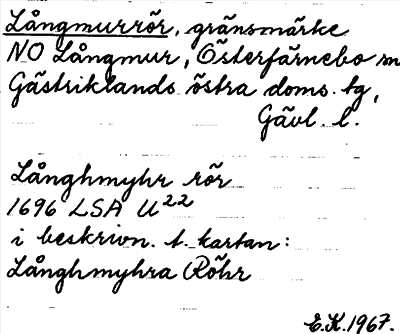 Långmurrör, gränsmärke
NO Långmur, Österfärnebo sn
Gästriklands östra doms. tg,
Gävl. l.
Långhmyhr rör
1696 LSA U²²
i beskrivn. t. kartan:
Långhmyhra Röhr
E.K. 1967.